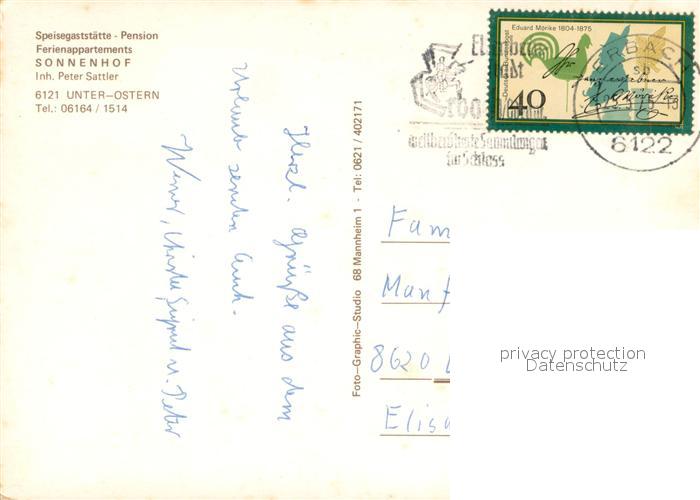 Speisegaststätte - Pension
Ferienappartements
SONNENHOF
Inh. Peter Sattler
6121 UNTER-OSTERN
Tel.: 06164 / 1514
Herzl. Grüße aus dem
Urlaub senden Euch.
Werner, Christa Sigrid u. Peter
Foto-Graphic-Studio 68 Mannheim 1 - Tel: 0621 / 402171
Eduard Mörike 1804-1875
Deutsche Bundespost
40
ERBACH
6122
weltberühmte Sammlungen
im Schloss
Fam
Manf
8620 L
Elisa
privacy protection
Datenschutz